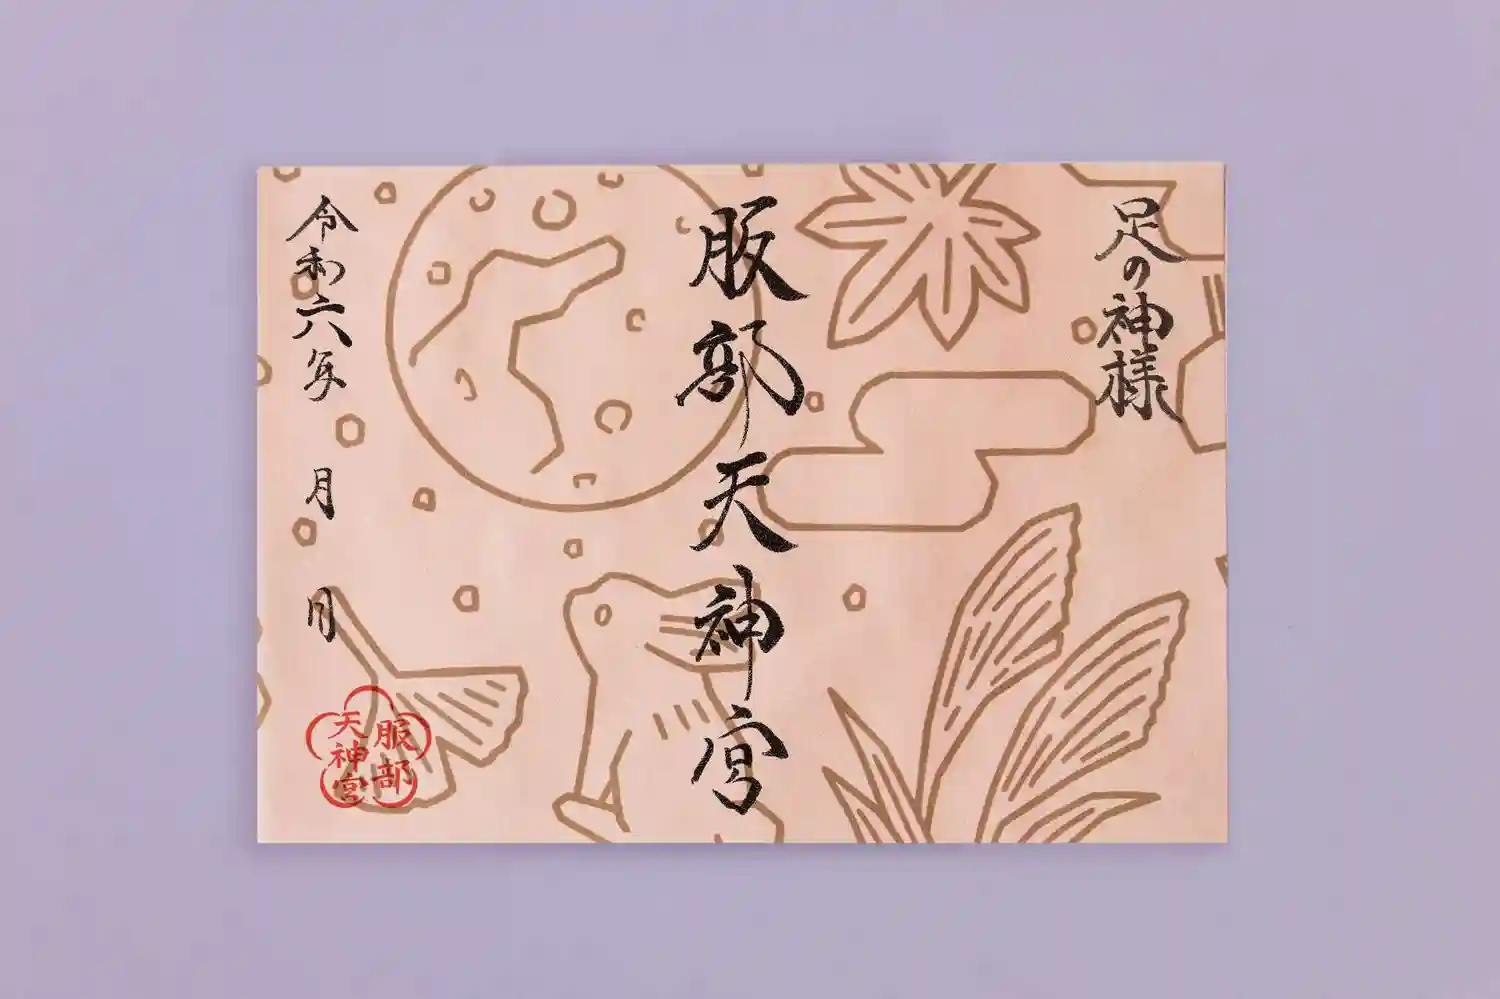 足の神様
服部天神宮
令和六年 月 日
服部
天神宮